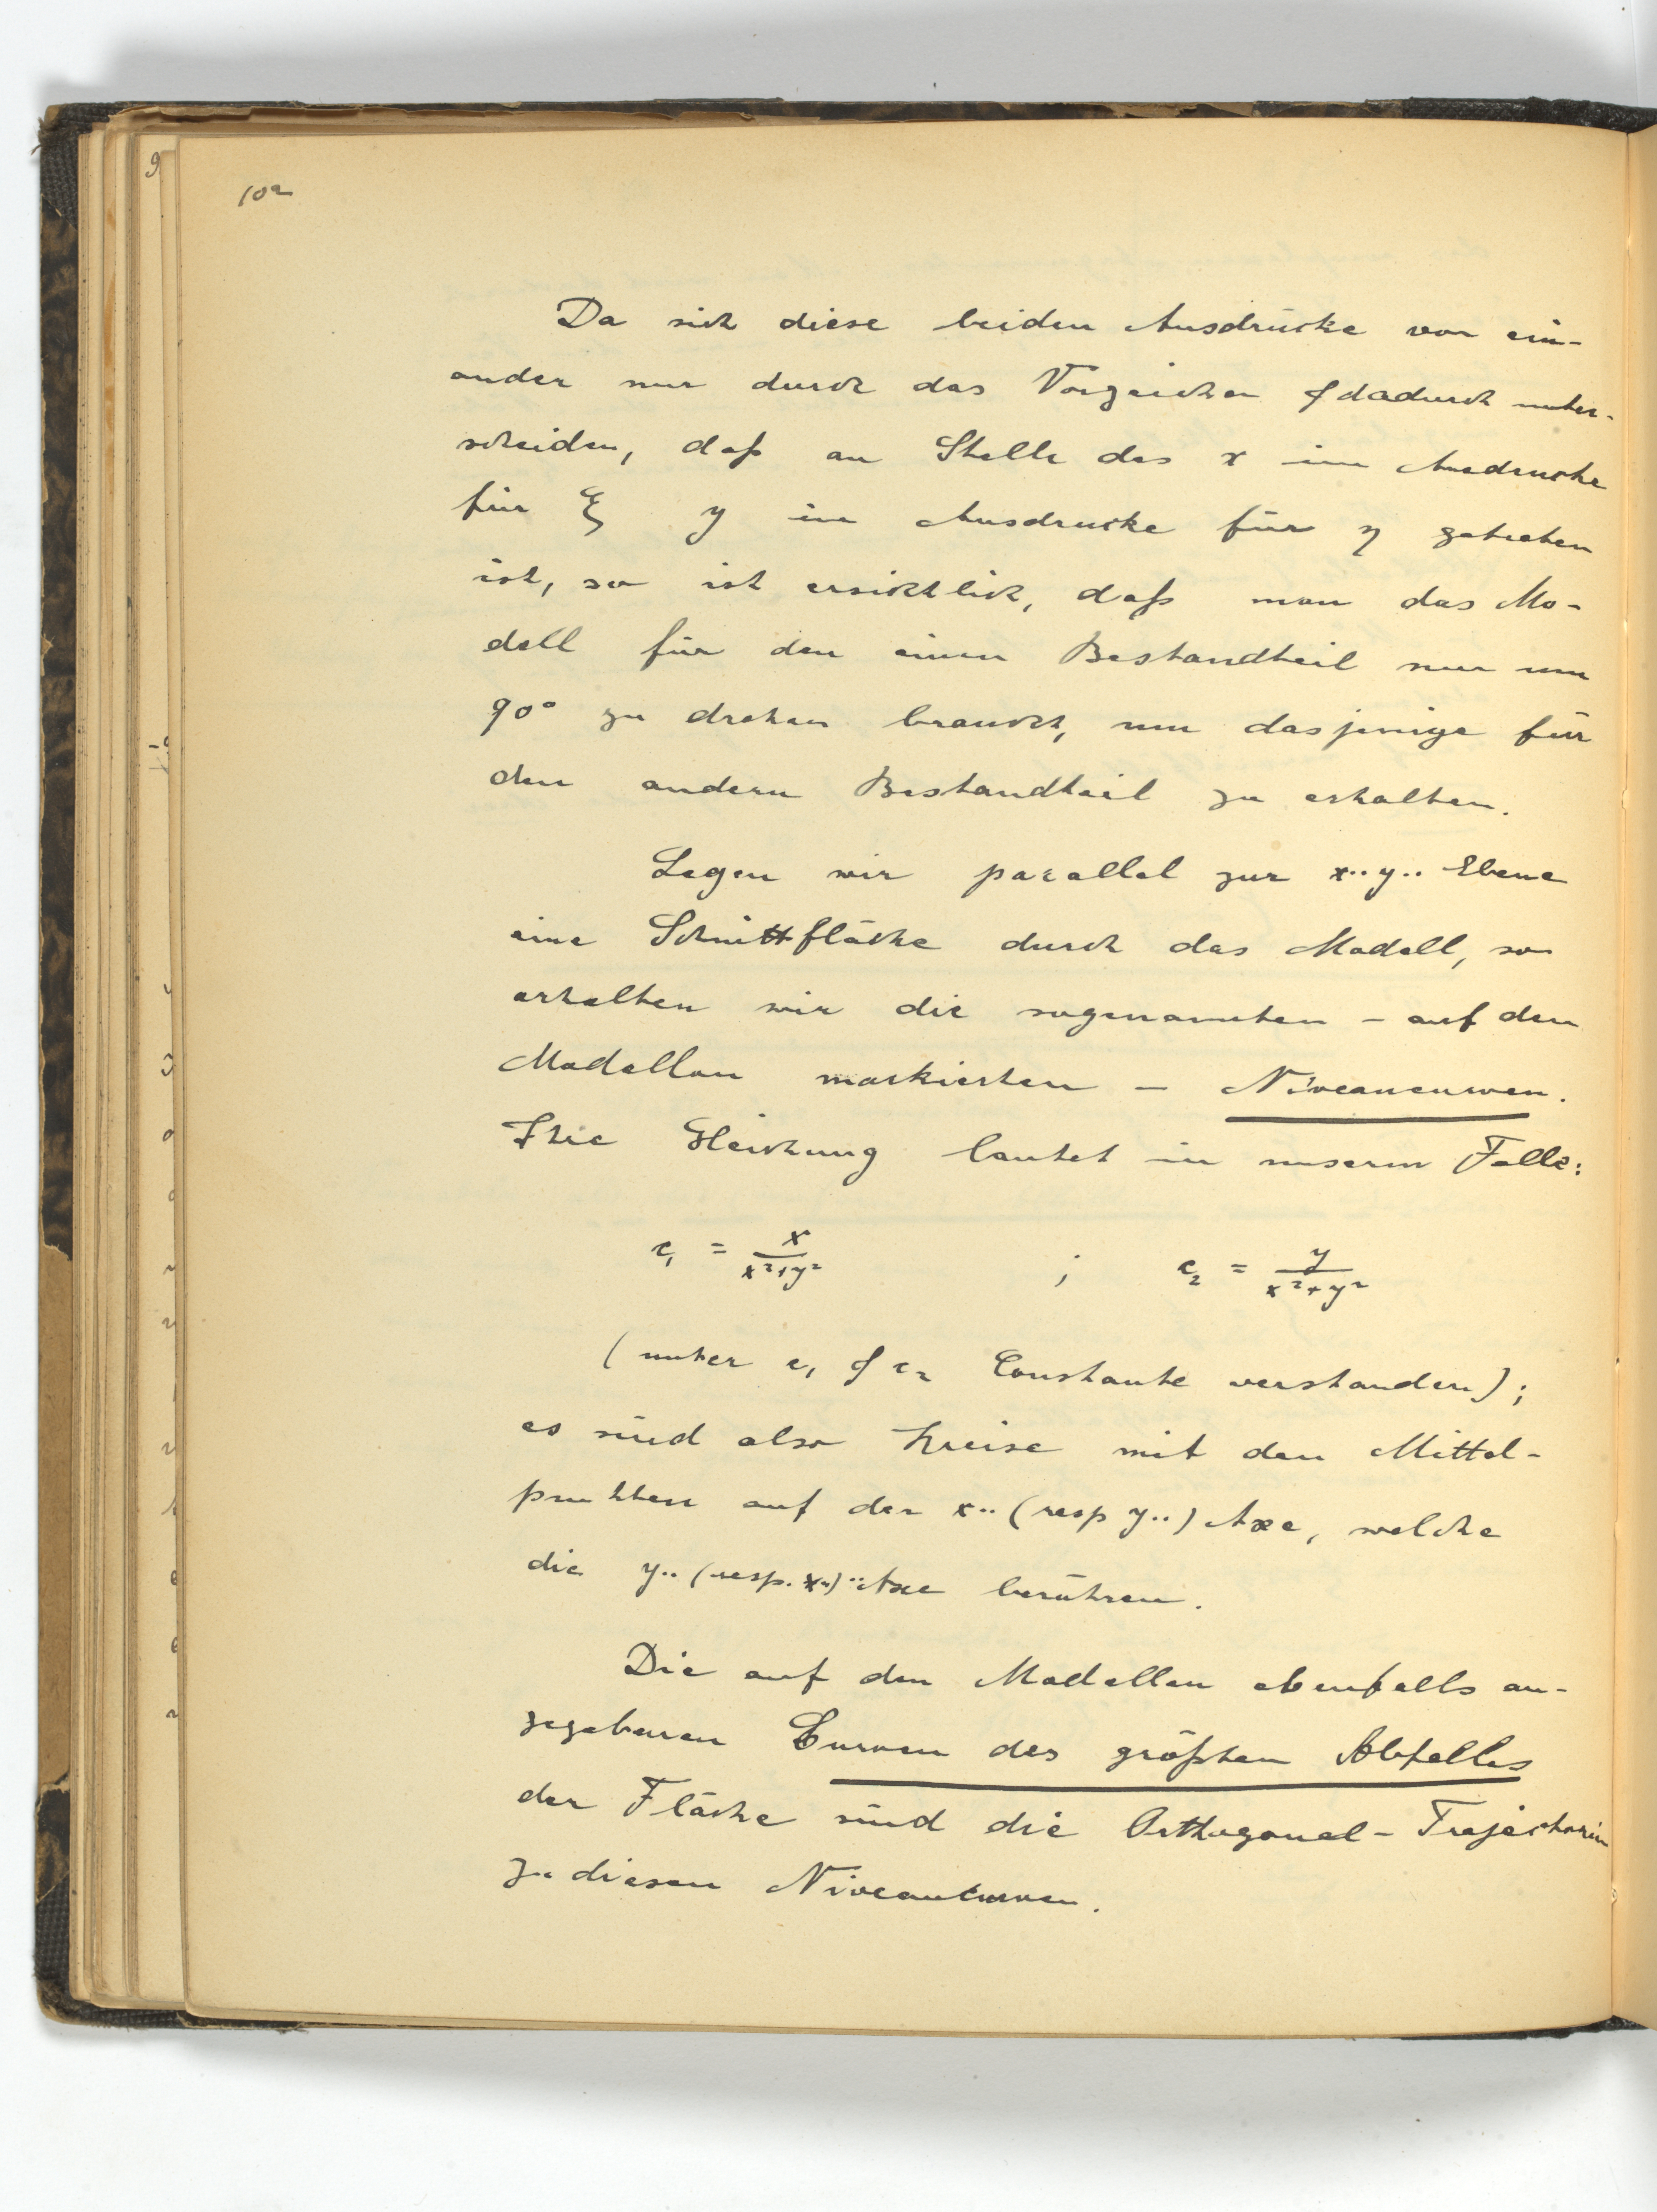 10a
Da sich diese beiden Ausdrücke von ein-
ander nur durch das Vorzeichen & dadurch unter-
scheiden, daß an Stelle des x im Ausdrucke
für ξ y im Ausdrucke für η getreten
ist, so ist ersichtlich, daß man das Mo-
dell für den einen Bestandteil nur um
90° zu drehen braucht, um dasjenige für
den andern Bestandteil zu erhalten.
Legen wir parallel zur x..y.. Ebene
eine Schnittfläche durch das Modell, so
erhalten wir die sogenannten – auf den
Modellen markierten – Niveaucurven.
Ihre Gleichung lautet in unserm Falle:
c₁ = x/(x²+y²) ; c₂ = y/(x²+y²)
(unter c₁ & c₂ Constante verstanden);
es sind also Kreise mit den Mittel-
punkten auf der x.. (resp y..) Axe, welche
die y.. (resp. x..) Axe berühren.
Die auf den Modellen ebenfalls an-
gegebenen Curven des größten Abfalles
der Fläche sind die Orthogonal-Trajectorien
zu diesen Niveaucurven.